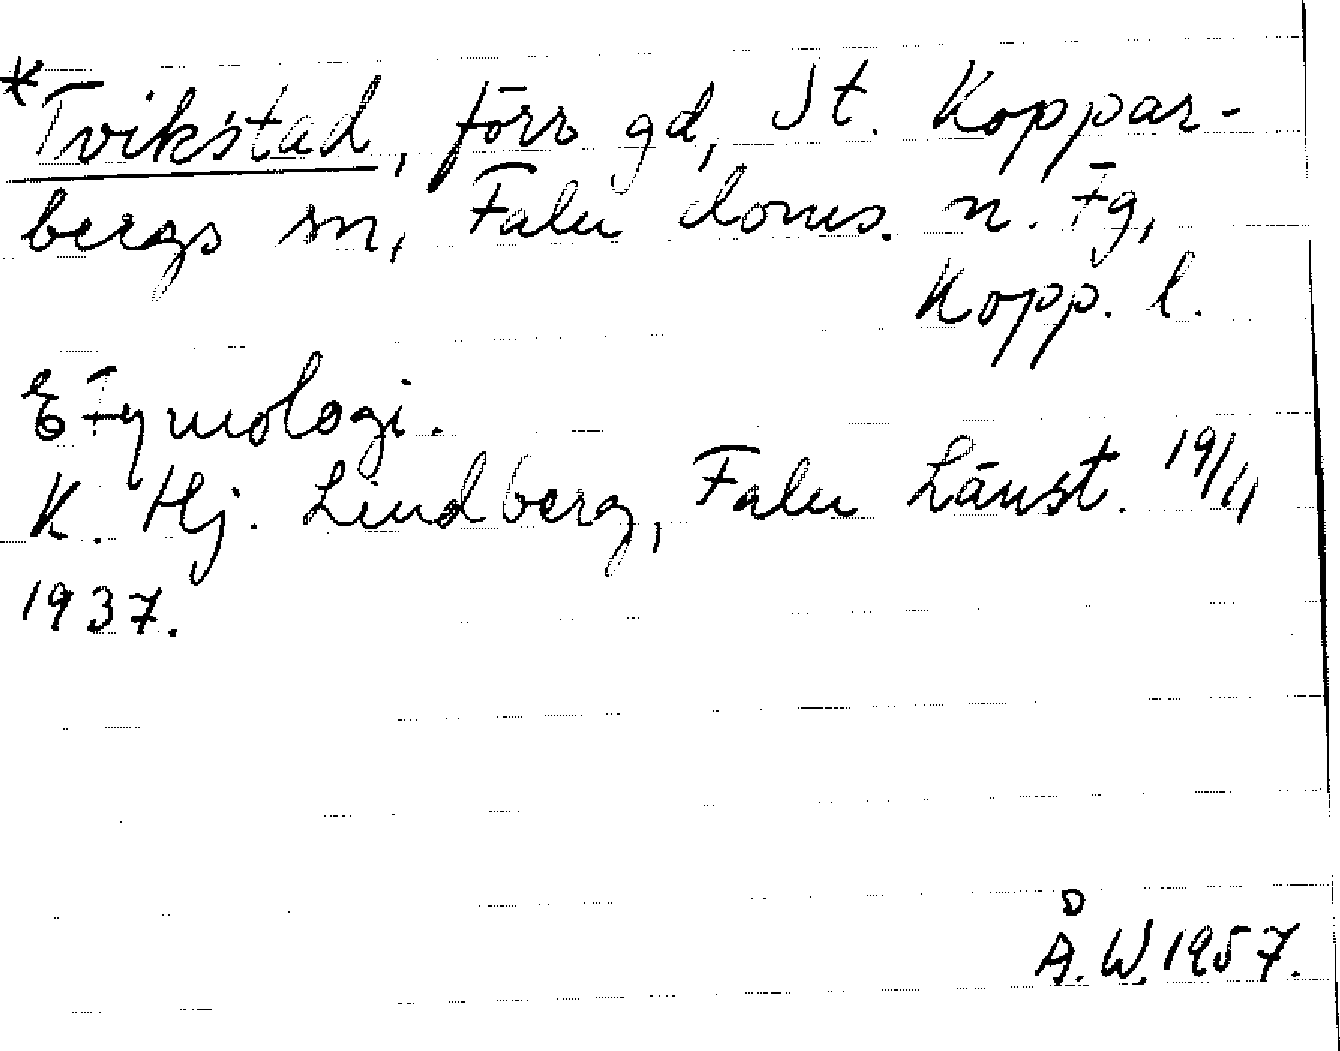 *Tvikstad, förr gd, St. Koppar-
bergs sn, Falu doms. n. tg,
Kopp. l.
Etymologi.
K. Hj. Lindberg, Falu Länst. 19/11
1937.
Å.W. 1957.